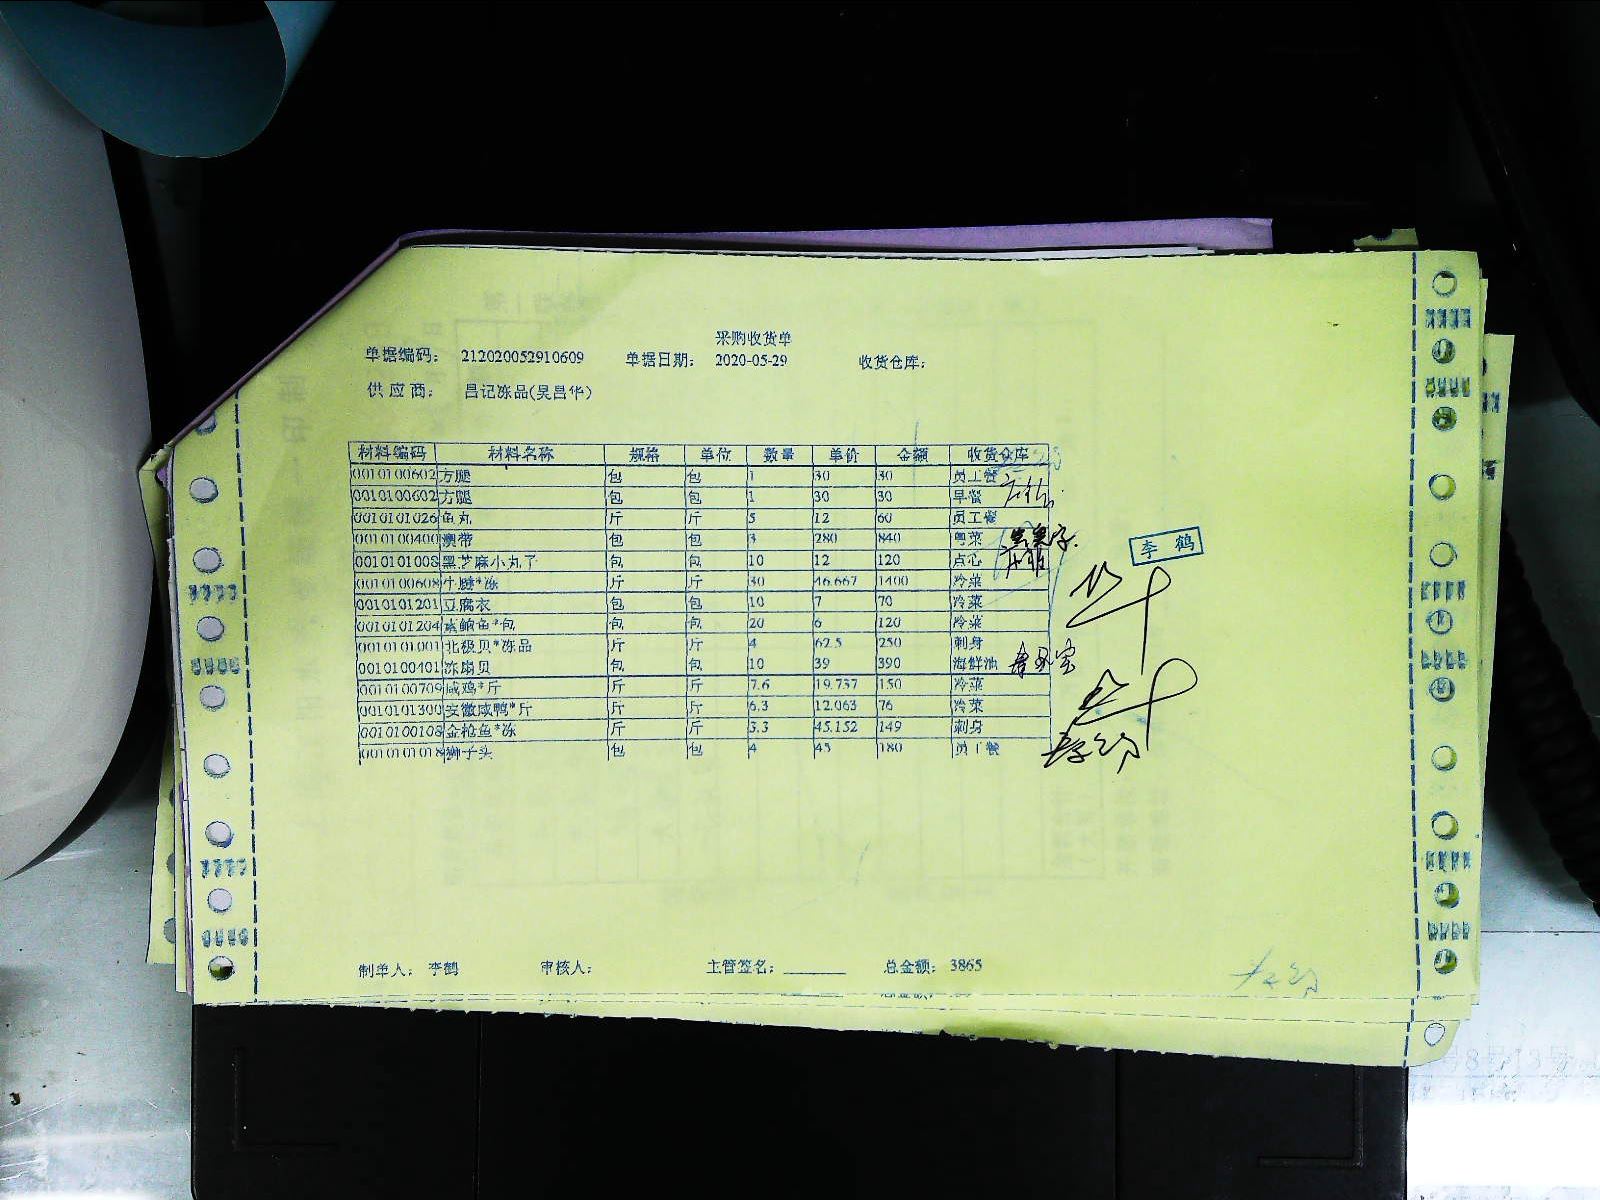 采购收货单
单据编码: 212020052910609 单据日期: 2020-05-29 收货仓库:
供应商: 昌记冻品(吴昌华)
材料编码 材料名称 规格 单位 数量 单价 金额 收货仓库
0010100602 方腿 包 包 1 30 30 员工餐
0010100602 方腿 包 包 1 30 30 早餐
0010101026 鱼丸 斤 斤 5 12 60 员工餐
0010100400 澳带 包 包 3 280 840 粤菜
0010101008 黑芝麻小丸子 包 包 10 12 120 点心
李鹤
0010100608 牛腱*冻 斤 斤 30 46.667 1400 冷菜
0010101201 豆腐衣 包 包 10 7 70 冷菜
0010101204 素鲍鱼*包 包 包 20 6 120 冷菜
0010101001 北极贝*冻品 斤 斤 4 62.5 250 刺身
0010100401 冻扇贝 包 包 10 39 390 海鲜池
0010100709 咸鸡*斤 斤 斤 7.6 19.737 150 冷菜
0010101300 安徽咸鸭*斤 斤 斤 6.3 12.063 76 冷菜
0010100108 金枪鱼*冻 斤 斤 3.3 45.152 149 刺身
0010101018 狮子头 包 包 4 45 180 员工餐
制单人: 李鹤 审核人: 主管签名: 总金额: 3865